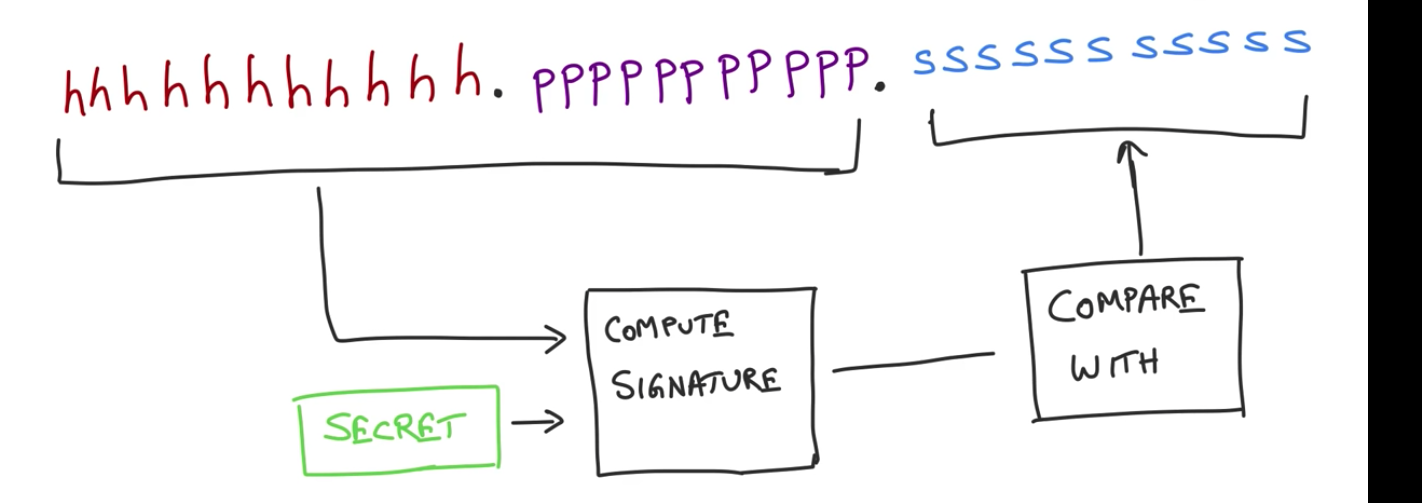 hhhhhhhhhhh. PPPPPPPPPPP. SSSSSSSSSSS
COMPUTE
SIGNATURE
COMPARE
WITH
SECRET